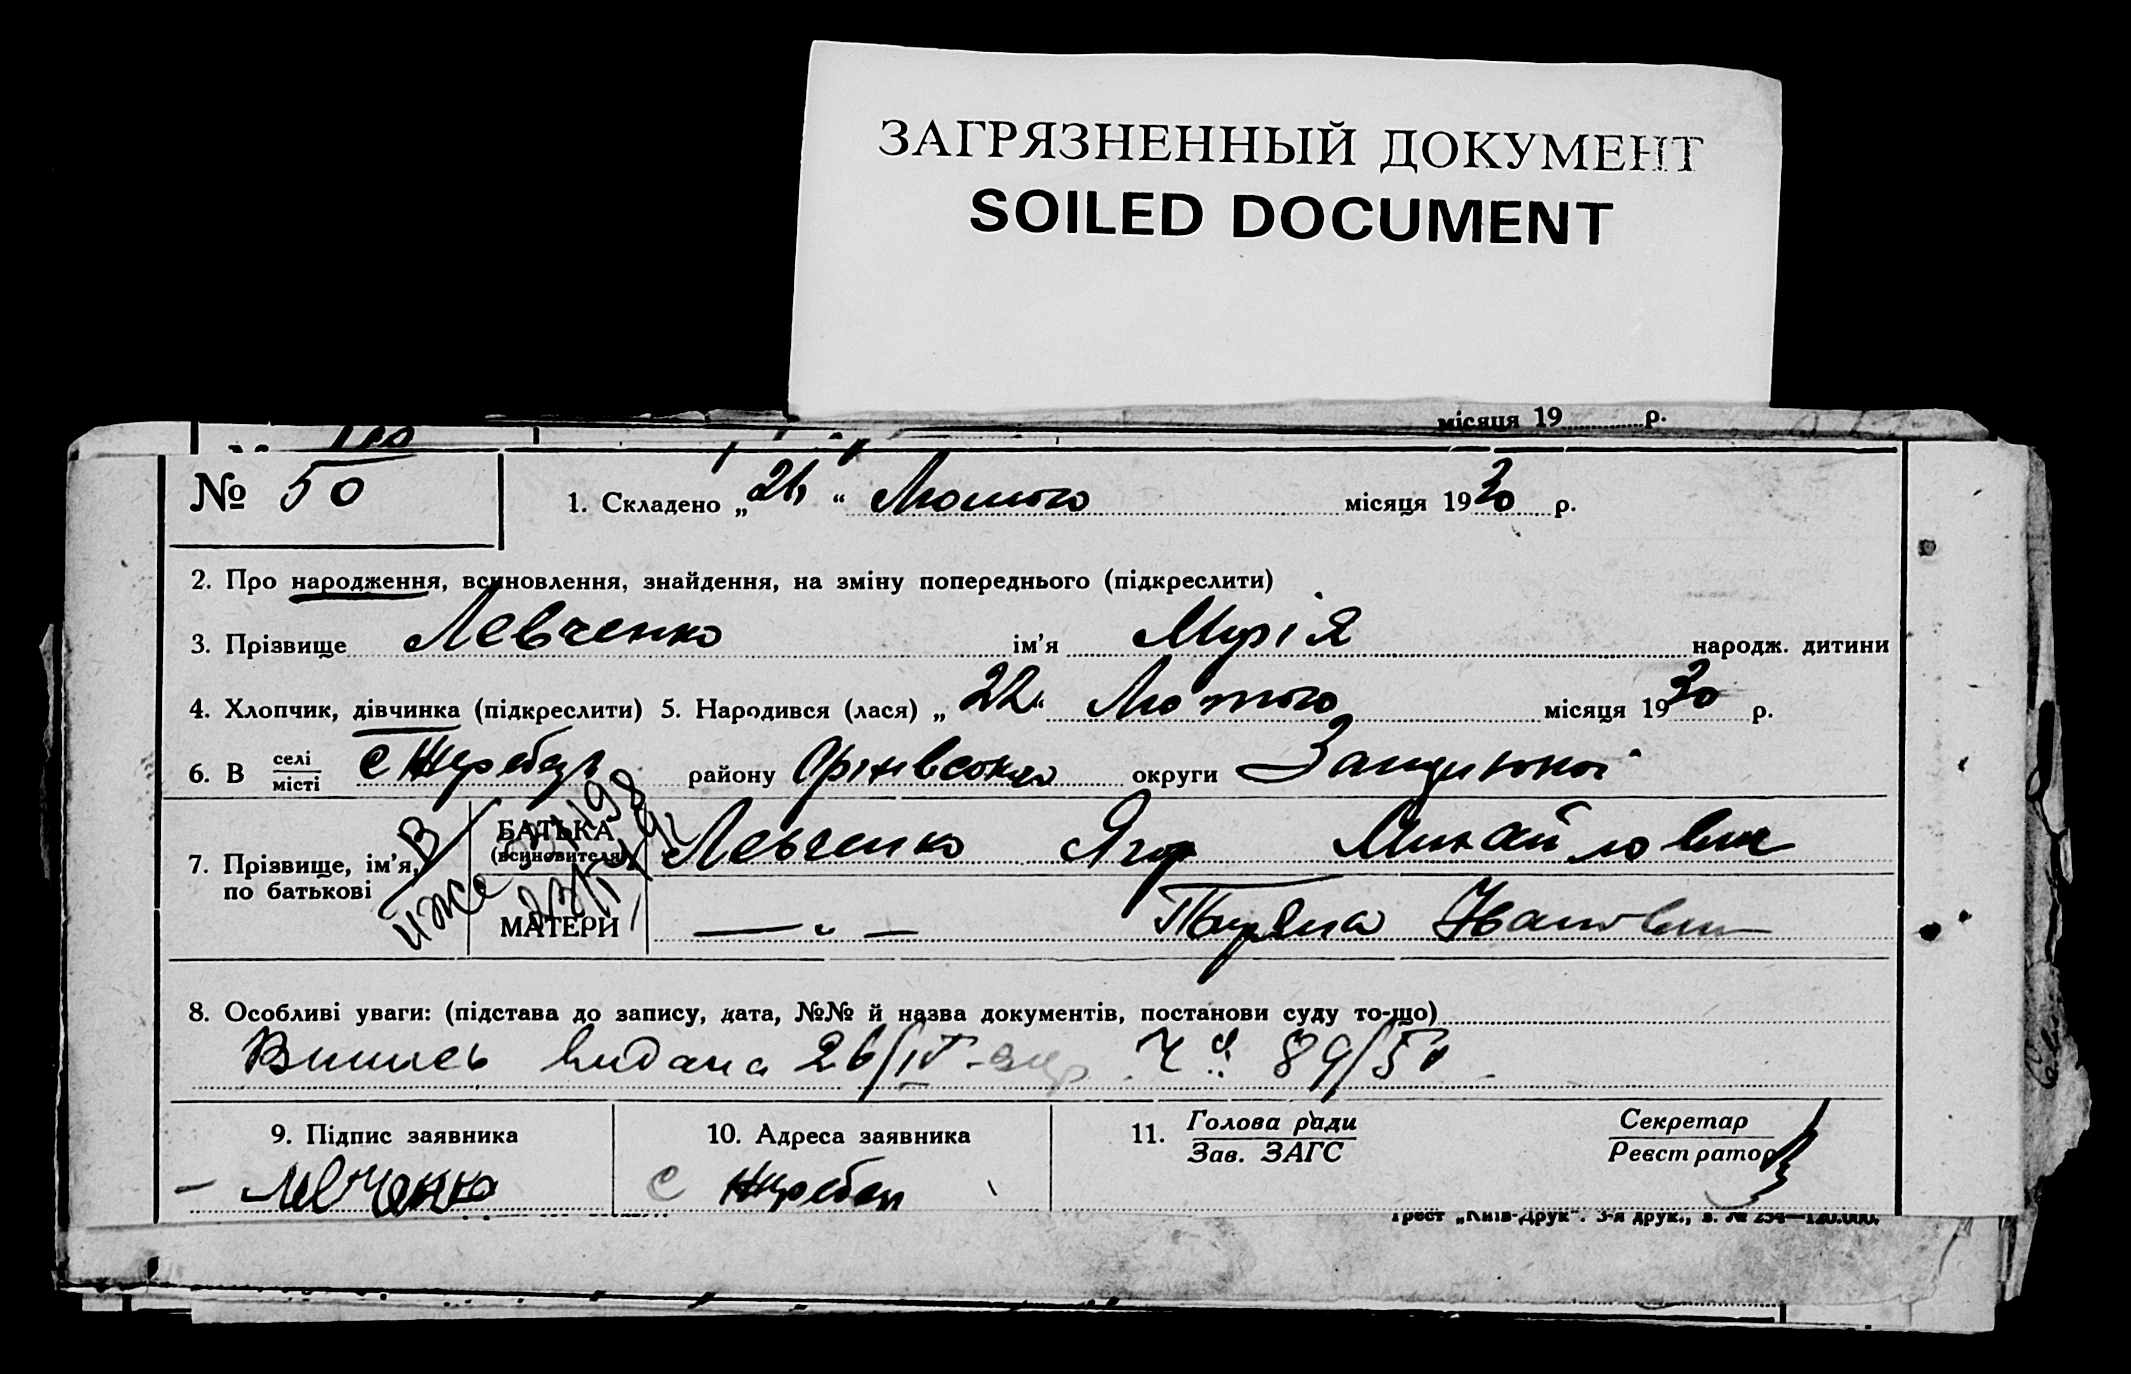 ЗАГРЯЗНЕННЫЙ ДОКУМЕНТ
SOILED DOCUMENT
місяця 19 р.
№ 50
1. Складено „26“ Лютого місяця 1930 р.
2. Про народження, всиновлення, знайдення, на зміну попереднього (підкреслити)
3. Прізвище Левченко ім’я Марія народж. дитини
4. Хлопчик, дівчинка (підкреслити) 5. Народився (лася) „22“ Лютого місяця 1930 р.
6. В селі місті с Жеребец району округи
7. Прізвище, ім’я, по батькові
БАТЬКА (всиновителя) Левченко Ягор Михайлович
МАТЕРИ — " — Ивановна
8. Особливі уваги: (підстава до запису, дата, №№ й назва документів, постанови суду то-що)
видана 26/IV 89/50
9. Підпис заявника
Левченко
10. Адреса заявника
с Жеребец
11. Голова ради
Зав. ЗАГС
Секретар
Реєстратор
Трест „Київ-Друк“. 3-я друк., з. № 254—120.000.